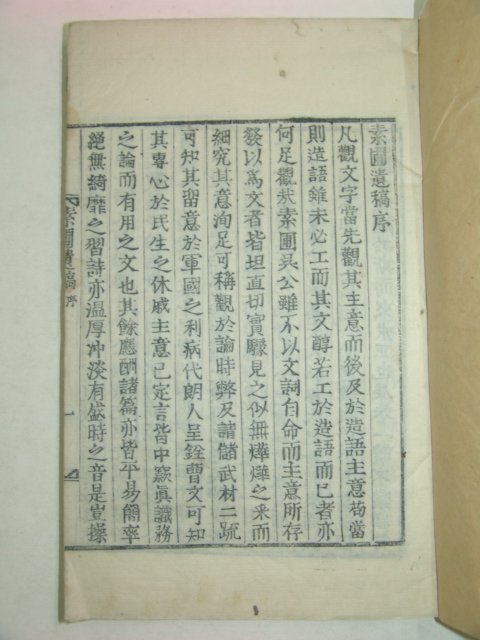 素圃遺稿序
凡觀文字當先觀其主意而後及於造語主意苟當
則造語雖未必工而其文醇若工於造語而已者亦
何足觀哉素圃吳公雖不以文詞自命而主意所存
發以爲文者皆坦直切實驟見之似無燁燁之采而
細究其意洵足可稱觀於論時弊及請儲武材二疏
可知其留意於軍國之利病代朗人呈銓曹文可知
其專心於民生之休戚主意已定言皆中窾眞識務
之論而有用之文也其餘應酬諸篇亦皆平易簡率
絕無綺靡之習詩亦溫厚冲淡有盛時之音是豈操
素圃遺稿 序 一